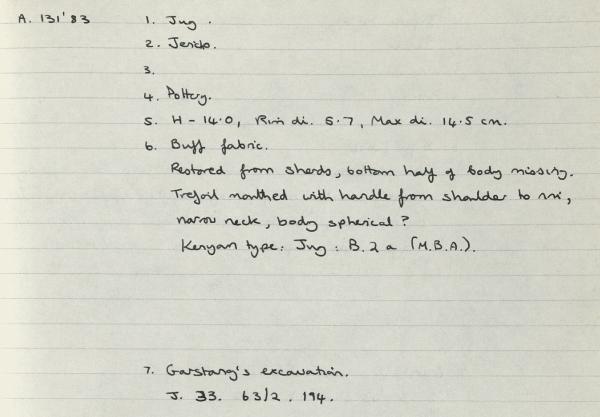 A. 131'83 1. Jug.
2. Jericho.
3.
4. Pottery.
5. H - 14.0, Rim di. 5.7, Max di. 14.5 cm.
6. Buff fabric.
Restored from sherds, bottom half of body missing.
Trefoil mouthed with handle from shoulder to rim,
narrow neck, body spherical?
Kenyan type: Jug: B.2a (M.B.A.).
7. Garstang's excavation.
J. 33. 63/2. 194.